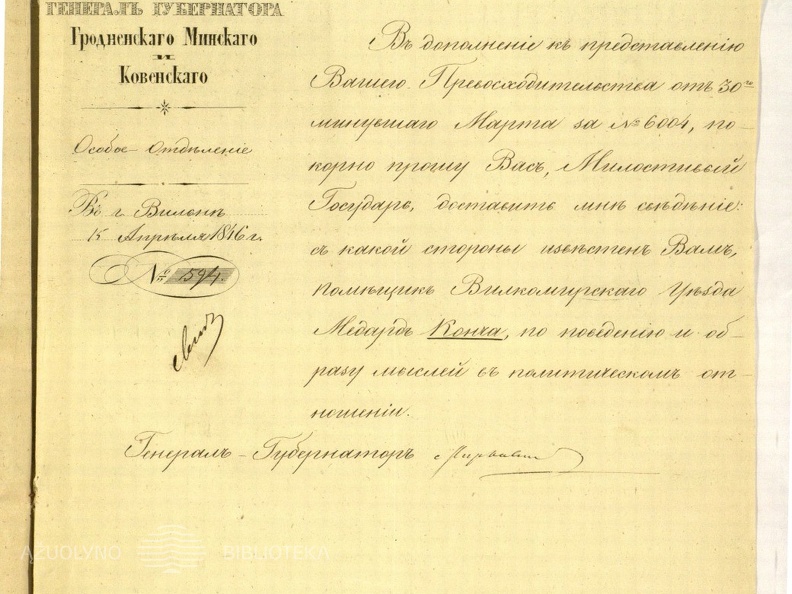 ГЕНЕРАЛЪ ГУБЕРНАТОРА
Гродненскаго Минскаго
и
Ковенскаго
Особое Отдѣленіе
Въ г. Вильнѣ
Апрѣля 1846 г.
№ 594.
Въ дополненіе къ представленію
Вашего Превосходительства отъ 30го
минувшаго Марта за № 6004, по-
корно прошу Васъ, Милостивый
Государь, доставить мнѣ свѣдѣніе:
съ какой стороны извѣстенъ Вамъ,
помѣщикъ Вилкомирскаго Уѣзда
Медардъ Конча, по поведенію и об-
разу мыслей въ политическомъ от-
ношеніи.
Генералъ-Губернаторъ
AŽUOLYNO BIBLIOTEKA